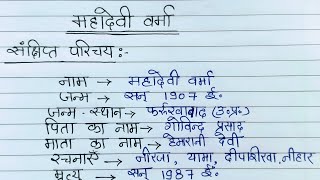 महादेवी वर्मा
संक्षिप्त परिचय:-
नाम → महादेवी वर्मा
जन्म → सन् 1907 ई.
जन्म - स्थान → फर्रुखाबाद (उ.प्र.)
पिता का नाम → गोविन्द प्रसाद
माता का नाम → हेमरानी देवी
रचनाएँ → नीरजा, यामा, दीपशिखा, नीहार
मृत्यु → सन् 1987 ई.